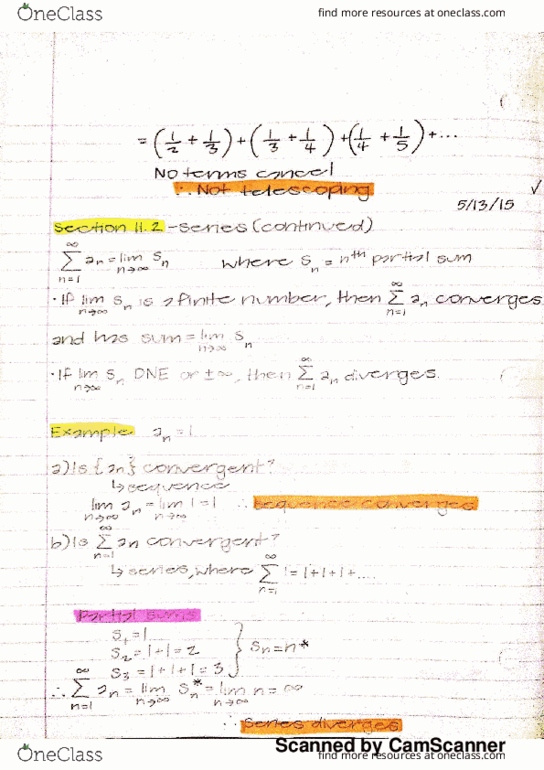 OneClass find more resources at oneclass.com
= (1/2 + 1/3) + (1/3 + 1/4) + (1/4 + 1/5) + ...
No terms cancel
∴ Not telescoping
5/13/15
Section 11.2 - Series (continued)
∞∑n=1 an = lim n→∞ Sn where Sn = nth partial sum
· If lim n→∞ Sn is a finite number, then ∞∑n=1 an converges
and has sum = lim n→∞ Sn
· If lim n→∞ Sn DNE or ±∞, then ∞∑n=1 an diverges.
Example an = 1
a) Is {an} convergent?
↳ sequence
lim n→∞ an = lim n→∞ 1 = 1 ∴ sequence converges
b) Is ∞∑n=1 an convergent?
↳ series, where ∞∑n=1 1 = 1+1+1+....
Partial sums
S1 = 1
S2 = 1+1 = 2 } Sn = n*
S3 = 1+1+1 = 3
∴ ∞∑n=1 an = lim n→∞ Sn* = lim n→∞ n = ∞
∴ Series diverges
Scanned by CamScanner
OneClass find more resources at oneclass.com